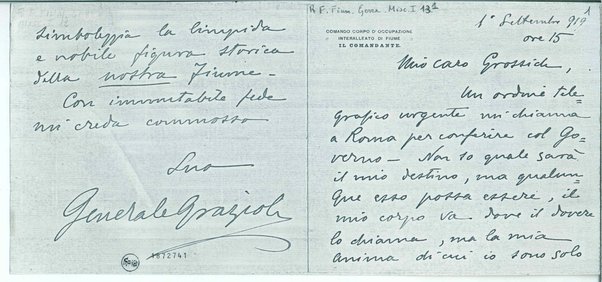 R.F. Fium. Gova Misc. I 13¹
1
1° Settembre 919
ore 15
COMANDO CORPO D'OCCUPAZIONE
INTERALLEATO DI FIUME
IL COMANDANTE.
Mio caro Grossich,
Un ordine tele-
grafico urgente mi chiama
a Roma per conferire col Go-
verno - Non so quale sarà
il mio destino, ma qualun-
que esso possa essere, il
mio corpo va dove il dovere
lo chiama, ma la mia
anima di cui io sono solo
simboleggia la limpida
e nobile figura storica
della nostra Fiume -
Con immutabile fede
mi creda commosso
Suo
Generale Grazioli
1672741